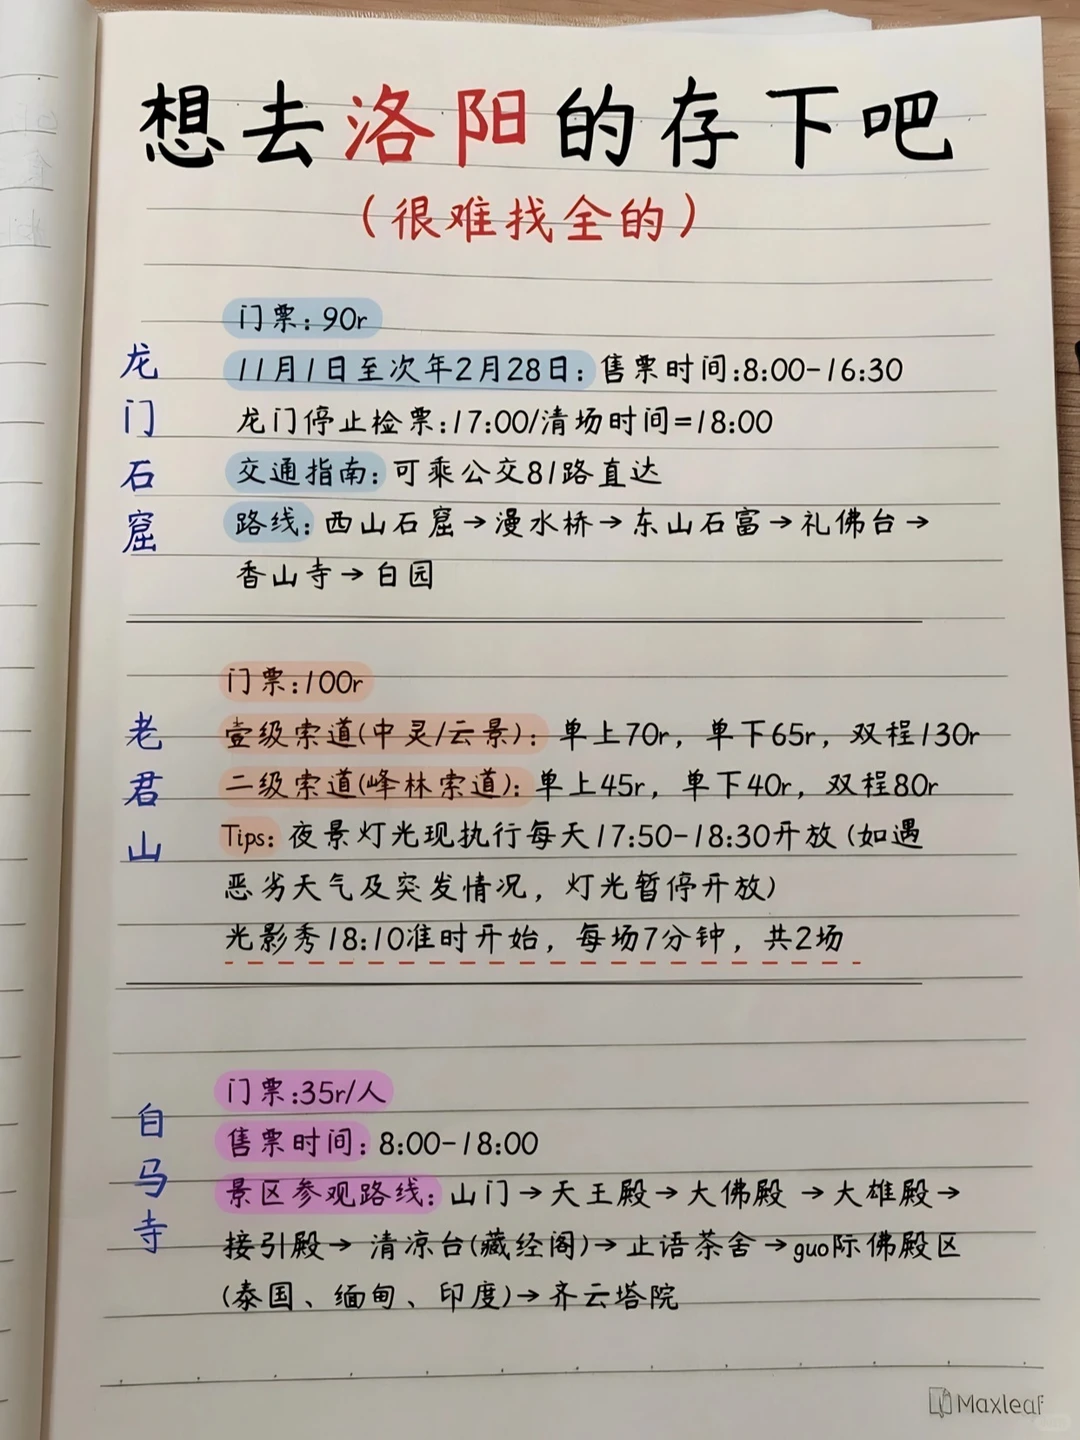 想去洛阳的存下吧
(很难找全的)
龙门石窟
门票:90r
11月1日至次年2月28日:售票时间:8:00-16:30
龙门停止检票:17:00/清场时间=18:00
交通指南:可乘公交81路直达
路线:西山石窟→漫水桥→东山石富→礼佛台→
香山寺→白园
老君山
门票:100r
壹级索道(中灵/云景):单上70r,单下65r,双程130r
二级索道(峰林索道):单上45r,单下40r,双程80r
Tips:夜景灯光现执行每天17:50-18:30开放(如遇
恶劣天气及突发情况,灯光暂停开放)
光影秀18:10准时开始,每场7分钟,共2场
白马寺
门票:35r/人
售票时间:8:00-18:00
景区参观路线:山门→天王殿→大佛殿→大雄殿→
接引殿→清凉台(藏经阁)→止语茶舍→guo际佛殿区
(泰国、缅甸、印度)→齐云塔院
Maxleaf